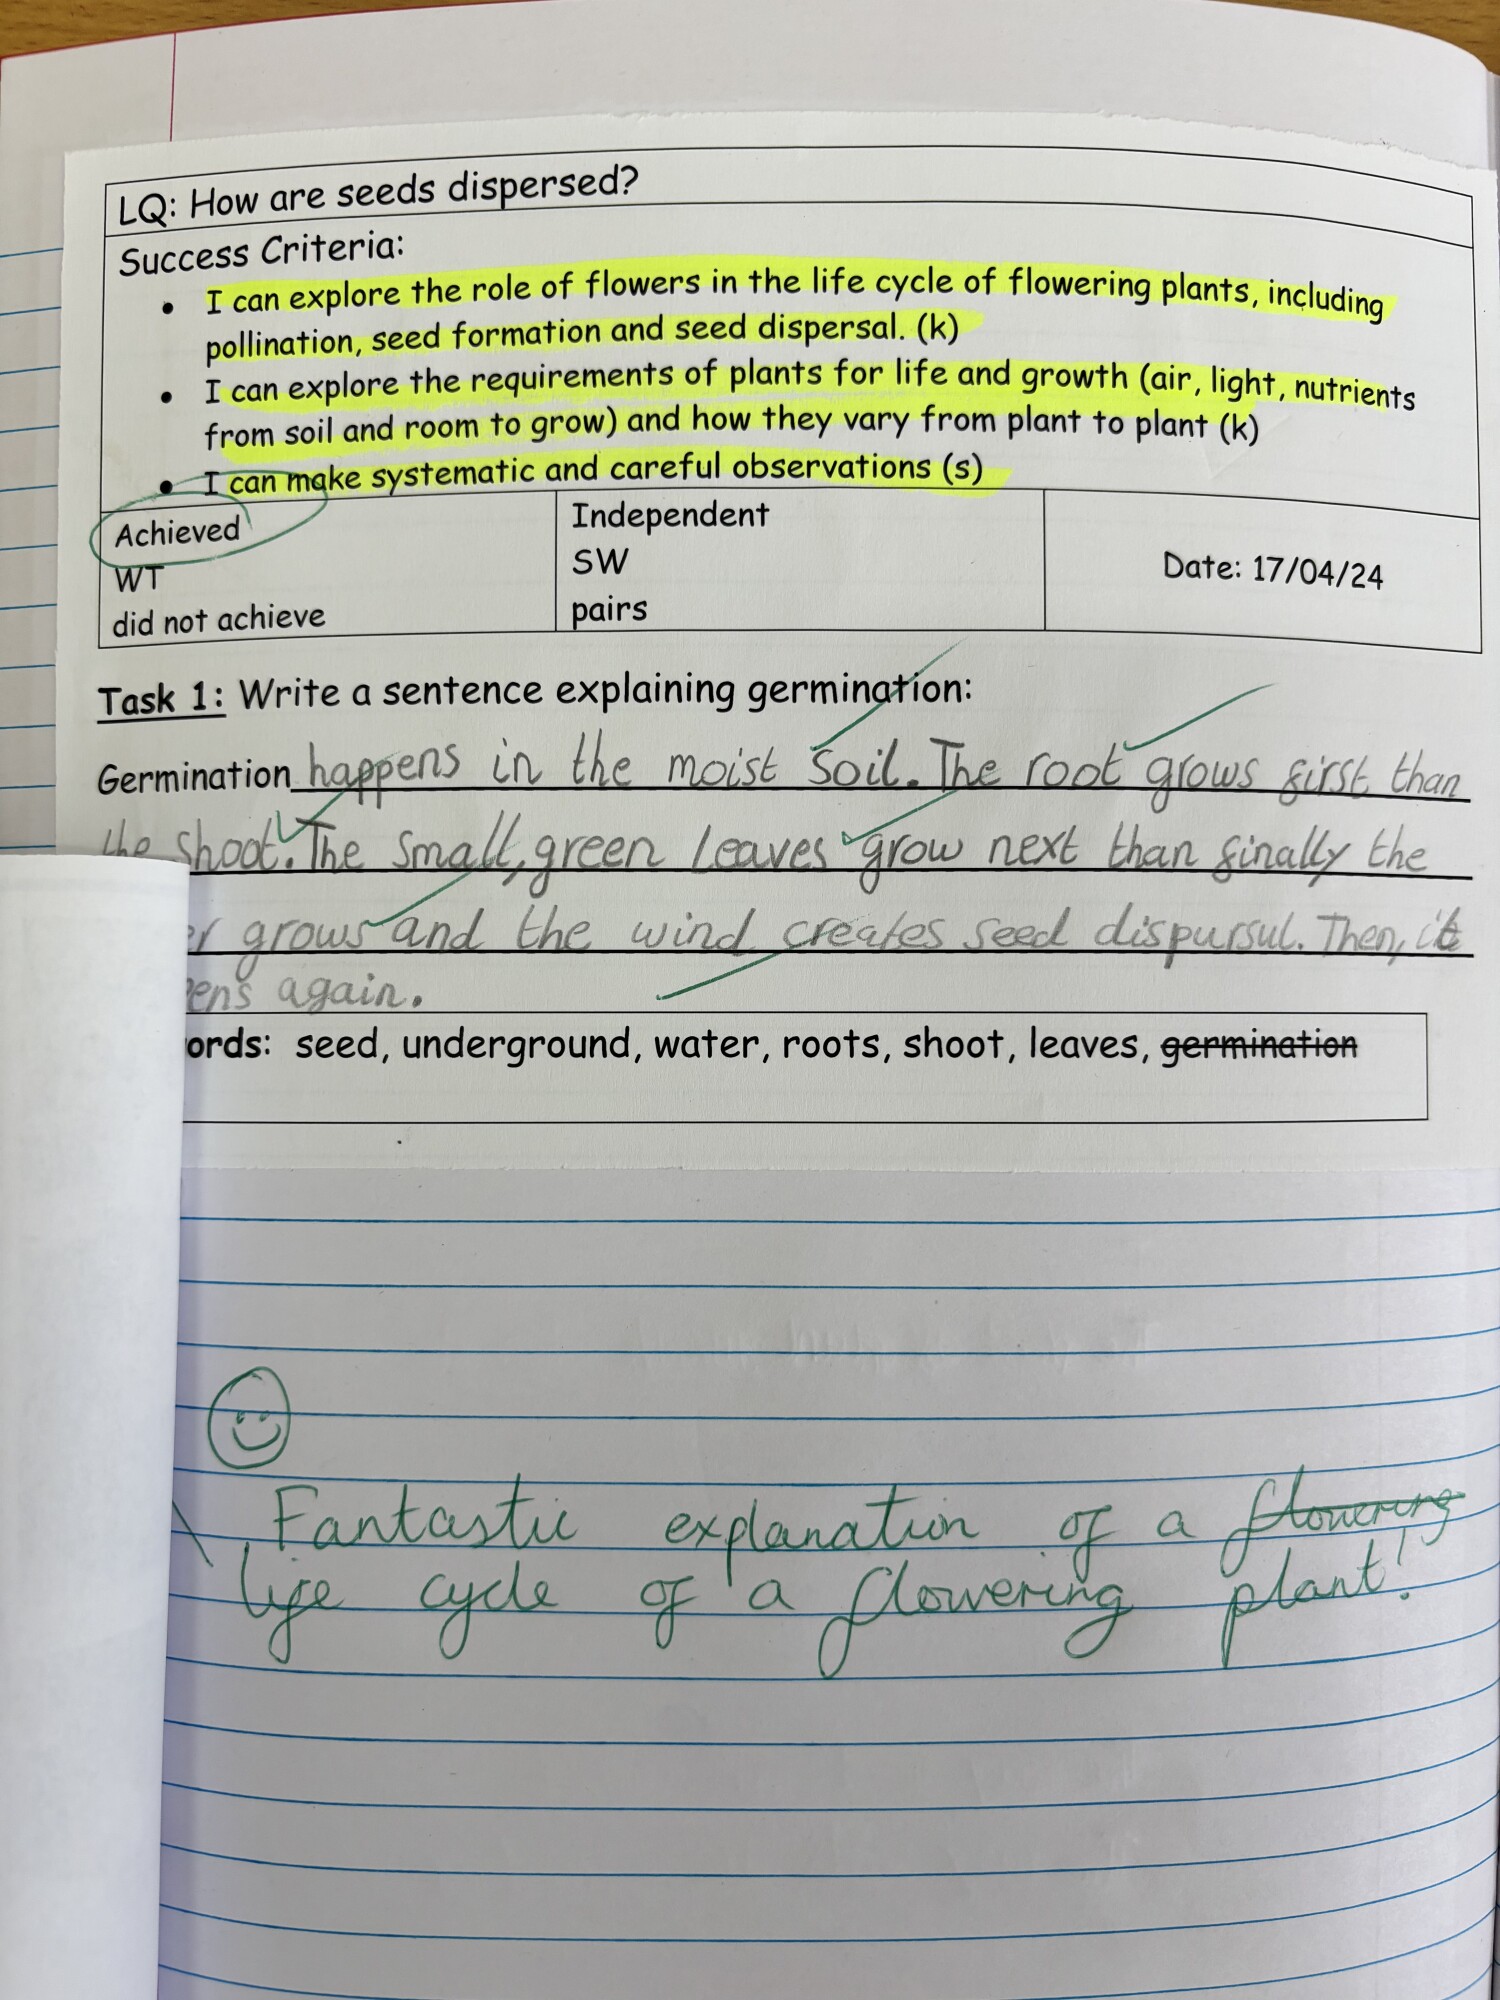 LQ: How are seeds dispersed?
Success Criteria:
• I can explore the role of flowers in the life cycle of flowering plants, including
pollination, seed formation and seed dispersal. (k)
• I can explore the requirements of plants for life and growth (air, light, nutrients
from soil and room to grow) and how they vary from plant to plant (k)
• I can make systematic and careful observations (s)
Achieved
WT
did not achieve
Independent
SW
pairs
Date: 17/04/24
Task 1: Write a sentence explaining germination:
Germination happens in the moist soil. The root grows first than
the shoot. The small, green leaves grow next than finally the
er grows and the wind creates seed dispursul. Then, it
ens again.
ords: seed, underground, water, roots, shoot, leaves, germination
Fantastic explanation of a flowering
life cycle of a flowering plant!